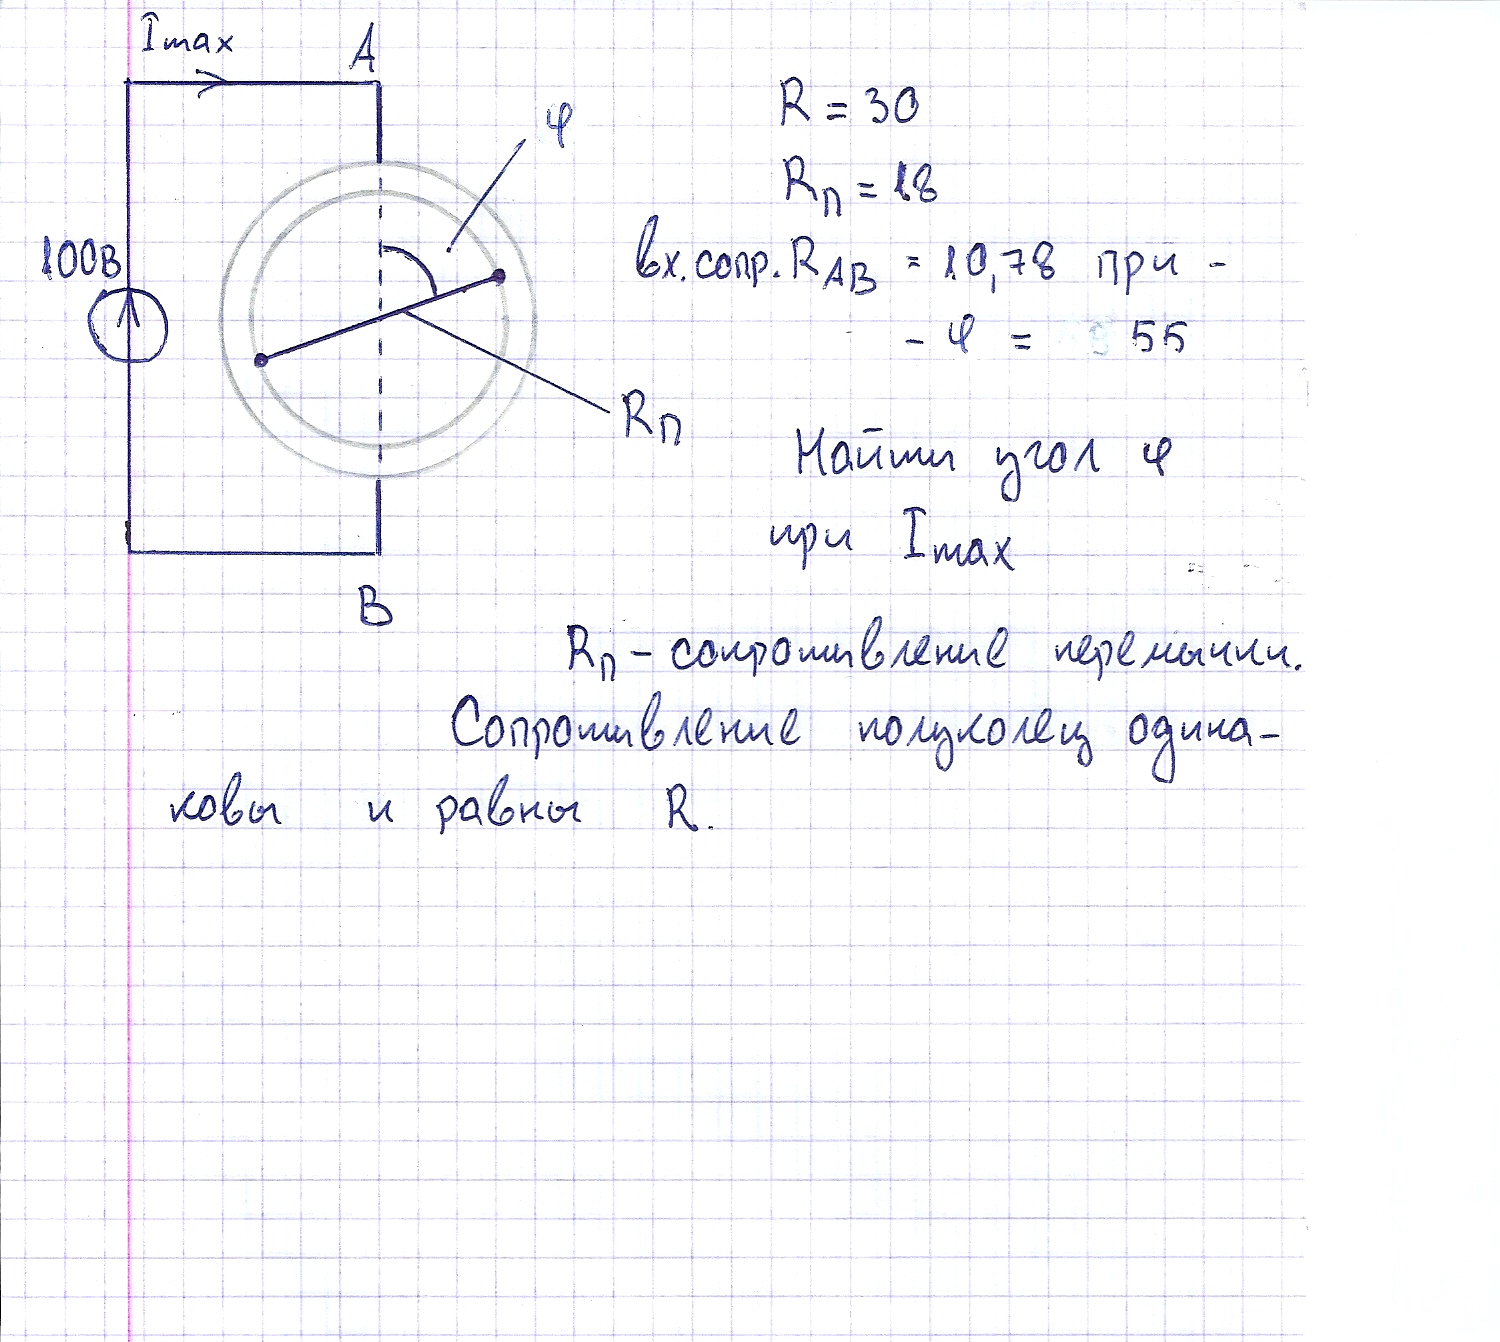 Imax
A
φ
R = 30
Rп = 18
100В
вх. сопр. RAB = 10,78 при -
- φ = 55
Rп
Найти угол φ
при Imax
B
Rп – сопротивление перемычки.
Сопротивление полуколец одина-
ковы и равны R.